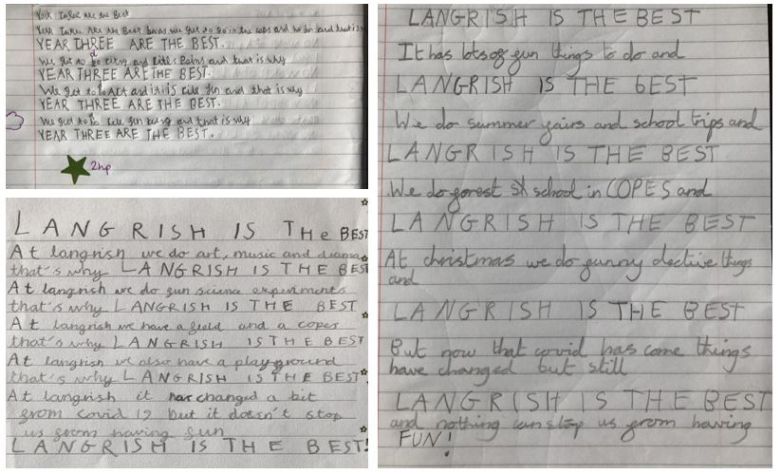 Year Three are the Best
Year Three Are the Best we get to go in the and that is
YEAR THREE ARE THE BEST.
We get to and and that is why
YEAR THREE ARE THE BEST.
We get to Art and is fun and that is why
YEAR THREE ARE THE BEST.
We get to fun and that is why
YEAR THREE ARE THE BEST.
2hp
LANGRISH IS THe BEST
At langrish we do art, music and drama
that's why LANGRISH IS THE BEST
At langrish we do fun science experiments
that's why LANGRISH IS THE BEST
At langrish we have a field and a copes
that's why LANGRISH IS THE BEST
At langrish we also have a playground
that's why LANGRISH IS THE BEST
At langrish it has changed a bit
from covid 19 but it doesn't stop
us from having fun
LANGRISH IS THE BEST!
LANGRISH IS THE BEST
It has lots of fun things to do and
LANGRISH IS THE BEST
We do summer fairs and school trips and
LANGRISH IS THE BEST
We do forest school in COPES and
LANGRISH IS THE BEST
At christmas we do funny dective things
and
LANGRISH IS THE BEST
But now that covid has come things
have changed but still
LANGRISH IS THE BEST
and nothing can stop us from having
FUN!